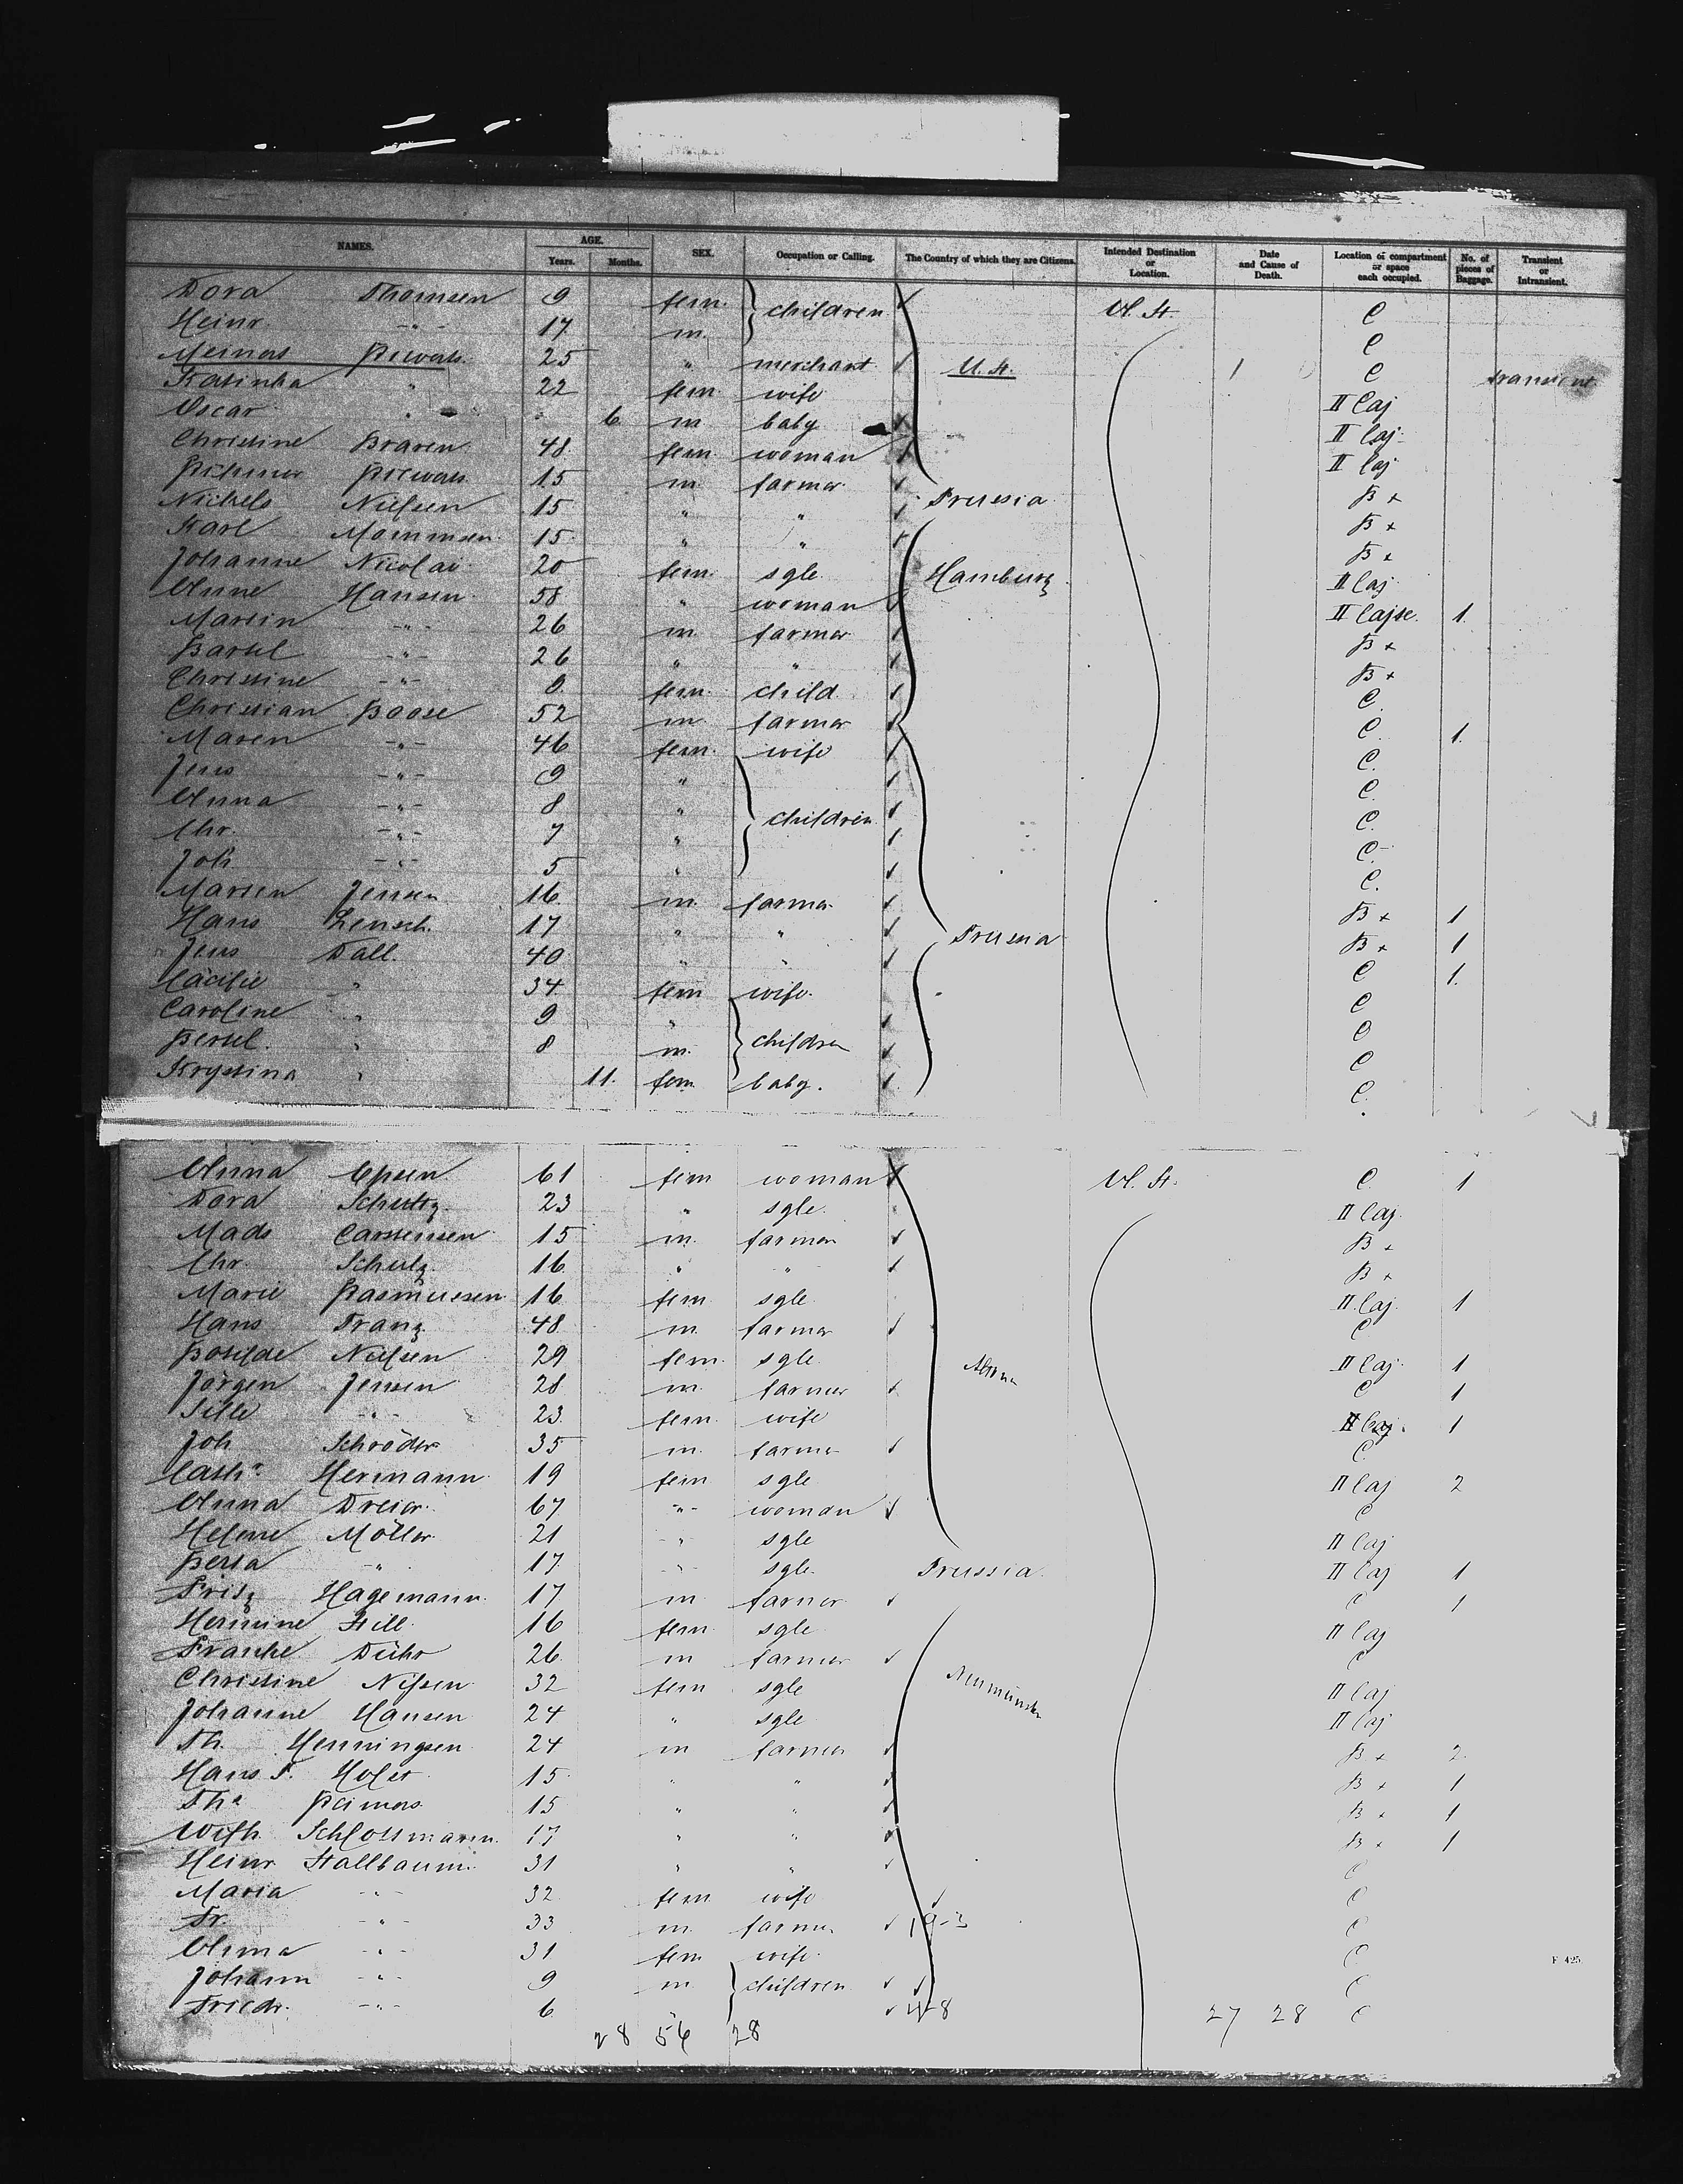 NAMES. AGE. Years. Months. SEX. Occupation or Calling. The Country of which they are Citizens. Intended Destination or Location. Date and Cause of Death. Location of compartment or space each occupied. No. of pieces of Baggage. Transient or Intransient.
Dora Thomsen 9 fem. children U. St. C
Heinr. -"- 17 m. C
25 " merchant U. St. C transient
Katinka " 22 fem. wife II Caj
Oscar " 6 m baby II Caj
Christine Braren 48 fem. woman II Caj
15 m. farmer Prussia B x
Nickels Nielsen 15 " " B x
Karl Mommsen 15 " " B x
Johanne Nicolai 20 fem. sgle Hamburg II Caj
Anne Hansen 58 " woman II Cajte. 1
Martin -"- 26 m. farmer B x
Bartel -"- 26 " " B x
Christine -"- 9 fem. child C.
Christian Boose 52 m. farmer C. 1.
Maren -"- 46 fem. wife C.
Jens -"- 9 " children C.
Anna -"- 8 " C.
Chr. -"- 7 " C.
Joh. -"- 5 " C.
Marten Jensen 16 m. farmer B x 1
Hans Lensch. 17 " " Prussia B x 1
Jens Dall. 40 " " C 1.
Cäcilie " 34 fem wife. C
Caroline " 9 " children C
Bertel. " 8 m. C
Krystina " 11. fem. baby. C.
Anna Epsen 61 fem woman U. St. C. 1
Dora Schultz. 23 " sgle. II Caj.
Mads Carstensen 15 m. farmer B x
Chr. Schulz 16 " " B x
Marie Rasmussen 16 fem. sgle II Caj. 1
Hans Franz 48 m. farmer C
Botilde Nielsen 29 fem. sgle Altona II Caj. 1
Jörgen Jensen 28 m. farmer C 1
Sille -"- 23. fem. wife II Caj. 1
Joh Schröder 35 m. farmer C.
Cath. Hermann 19 fem sgle II Caj 2
Anna Dreier. 67 -"- woman C
Helene Möller 21 -"- sgle II Caj
Berta -"- 17. -"- sgle. Prussia. II Caj 1
Fritz Hagemann 17 m farmer C 1
Hermine Still 16 fem. sgle II Caj
Frauke Dühr 26 m farmer C
Christine Nissen 32 fem sgle Neumünster II Caj
Johanne Hansen 24 " sgle II Caj
Th. Henningsen 24 m farmer B x 2.
Hans P. Holst 15 " " B x 1
15 " " B x 1
Wilh. Schlottmann. 17 " " B x 1
Heinr Stallbaum. 31 " " C
Maria -"- 32 fem wife C
Fr. -"- 33 m. farmer 19-3 C
Anna -"- 31 fem wife. C
Johann -"- 9 m children C
Friedr. -"- 6 " 27 28 C
28 56 28
F 425